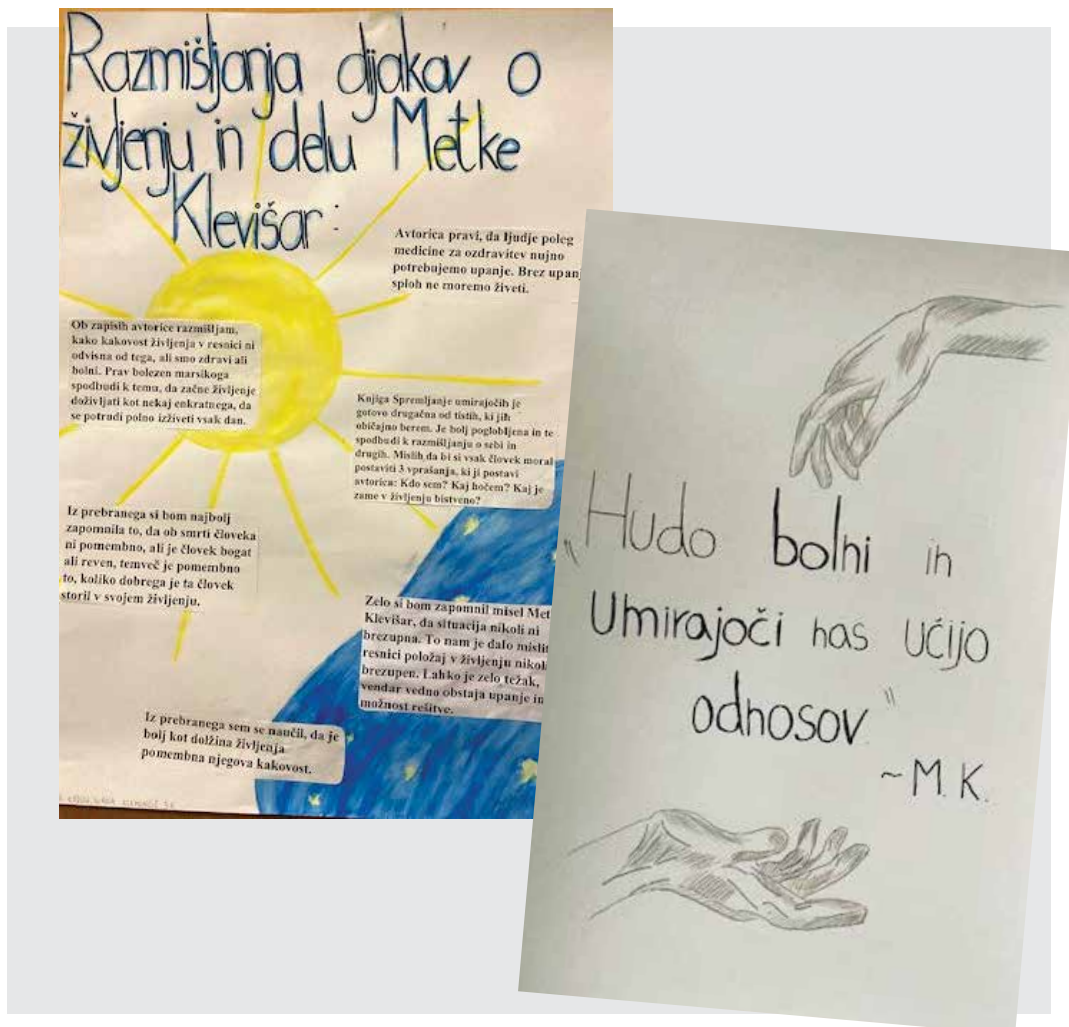 Razmišljanja dijakov o
življenju in delu Metke
Klevišar:
Avtorica pravi, da ljudje poleg
medicine za ozdravitev nujno
potrebujemo upanje. Brez
sploh ne moremo živeti.
Ob zapisih avtorice razmišljam,
kako kakovost življenja v resnici ni
odvisna od tega, ali smo zdravi ali
bolni. Prav bolezen marsikoga
spodbudi k temu, da začne življenje
doživljati kot nekaj enkratnega, da
se potrudi polno izživeti vsak dan.
Knjiga Spremljanje umirajočih je
gotovo drugačna od tistih, ki jih
običajno berem. Je bolj poglobljena in te
spodbudi k razmišljanju o sebi in
drugih. Mislih da bi si vsak človek moral
postaviti 3 vprašanja, ki ji postavi
avtorica: Kdo sem? Kaj hočem? Kaj je
zame v življenju bistveno?
Iz prebranega si bom najbolj
zapomnila to, da ob smrti človeka
ni pomembno, ali je človek bogat
ali reven, temveč je pomembno
to, koliko dobrega je ta človek
storil v svojem življenju.
Zelo si bom zapomnil misel
Klevišar, da situacija nikoli ni
brezupna. To nam je dalo
resnici položaj v življenju
brezupen. Lahko je zelo težak,
vendar vedno obstaja upanje in
možnost rešitve.
Iz prebranega sem se naučil, da je
bolj kot dolžina življenja
pomembna njegova kakovost.
„Hudo bolni in
Umirajoči nas učijo
odnosov"
~M.K.